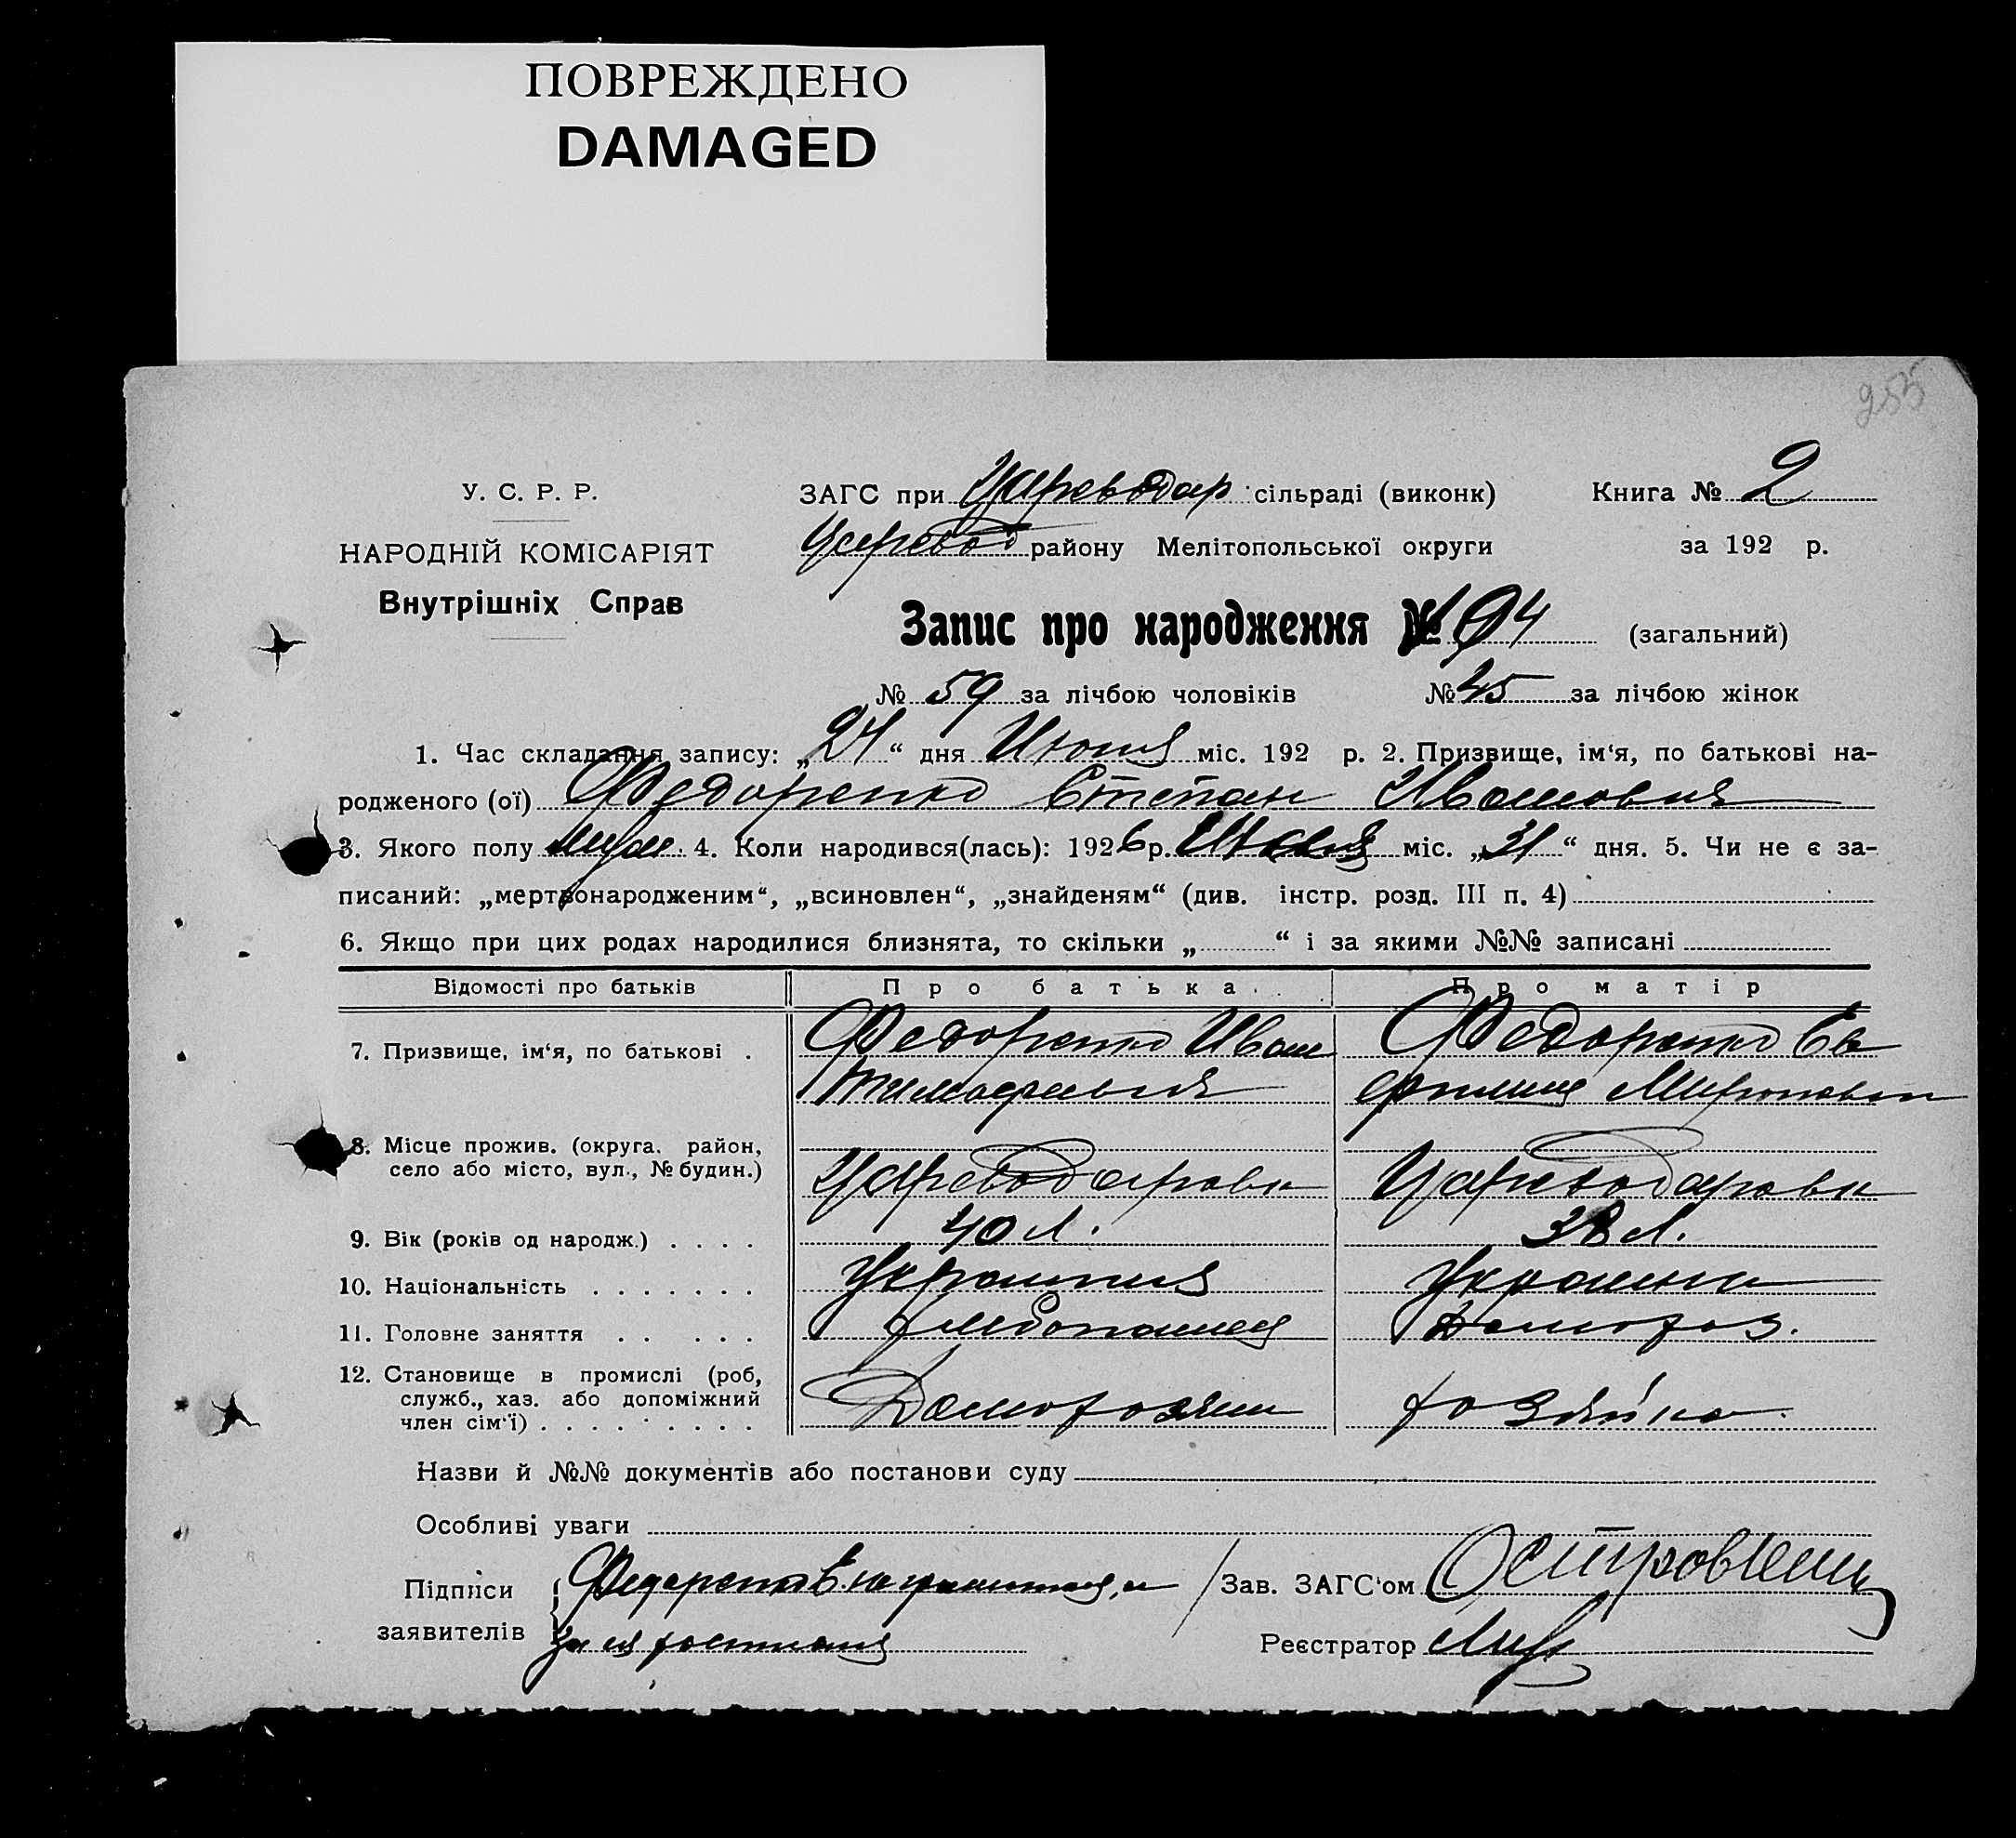 ПОВРЕЖДЕНО
DAMAGED
255
У. С. Р. Р.
НАРОДНІЙ КОМІСАРІЯТ
Внутрішніх Справ
ЗАГС при Цареводар сільраді (виконк) Книга № 2
Царевод району Мелітопольської округи за 192 р.
Запис про народження № 94 (загальний)
№ 59 за лічбою чоловіків № 45 за лічбою жінок
1. Час складання запису: „24“ дня Июня міс. 192 р. 2. Призвище, ім‘я, по батькові на-
родженого (ої) Федоренко Степан Иванович
3. Якого полу муж. 4. Коли народився(лась): 1926 р. міс. „31“ дня. 5. Чи не є за-
писаний: „мертвонародженим“, „всиновлен“, „знайденям“ (див. інстр. розд. III п. 4)
6. Якщо при цих родах народилися близнята, то скільки „ “ і за якими №№ записані
Відомості про батьків Про батька Про матір
7. Призвище, ім‘я, по батькові . Федоренко Иван Федоренко Ев
Тимофеевич Мироновн
8. Місце прожив. (округа, район,
село або місто, вул., № будин.) Цареводаровк Цареводаровк
9. Вік (років од народж.) . . . . 40 л. 38 л.
10. Національність . . . . . . . Украинец Украинк
11. Головне заняття . . . . . Домохоз.
12. Становище в промислі (роб,
служб., хаз. або допоміжний
член сім‘ї) . . . . . . . . . Домохозяин хозяйка
Назви й №№ документів або постанови суду
Особливі уваги
Підписи
заявителів
Федоренко неграмотная, а
за ея
Зав. ЗАГС‘ом
Реєстратор